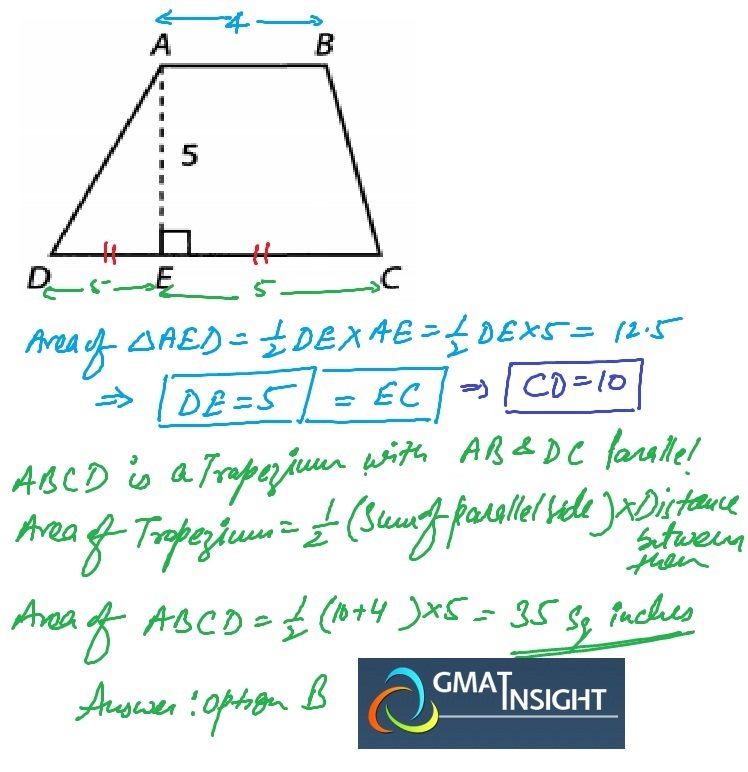 4
A B
5
D E C
5 5
Area of △AED = 1/2 DE × AE = 1/2 DE × 5 = 12.5
⇒ DE = 5 = EC ⇒ CD = 10
ABCD is a Trapezium with AB & DC Parallel
Area of Trapezium = 1/2 (Sum of parallel side) × Distance
between
them
Area of ABCD = 1/2 (10+4) × 5 = 35 Sq inches
Answer: option B
GMAT INSIGHT